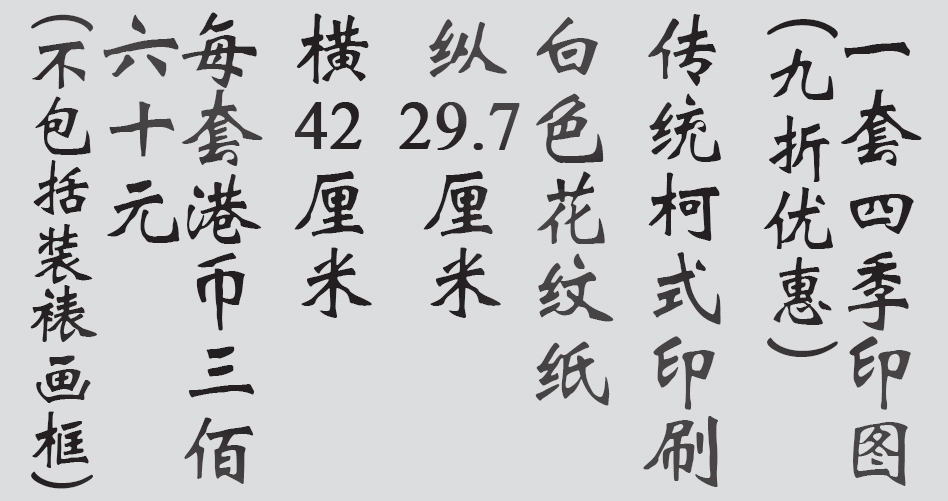 一套四季印图
（九折优惠）
传统柯式印刷
白色花纹纸
纵29.7厘米
横42厘米
每套港币三佰
六十元
（不包括装裱画框）